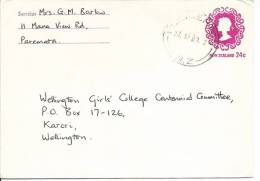 Sender Mrs. G. M. Barlow
11 Mana View Rd,
Paremata.
NEW ZEALAND 24c
N.Z.
Wellington Girls' College Centennial Committee,
P.O. Box 17-126,
Karori,
Wellington.